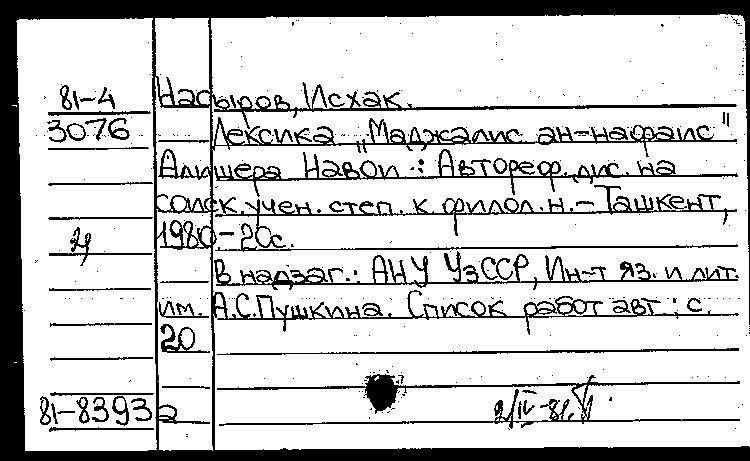 81-4 Насыров, Исхак.
3076 Лексика „Маджалис ан-нафаис"
Алишера Навои.: Автореф. дис. на
соиск. учен. степ. к. филол. н. - Ташкент,
1980 - 20с.
В надзаг.: АНУ УзССР, Ин-т яз. и лит.
им. А.С.Пушкина. Список работ авт.: с.
20
81-8393а